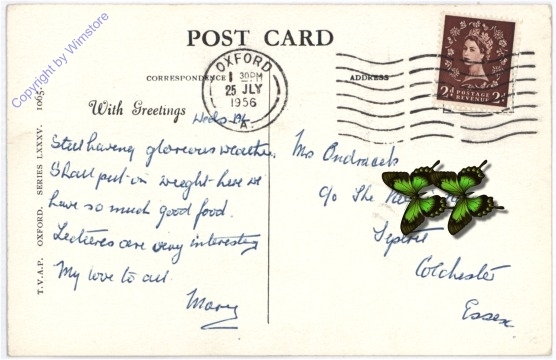 Copyright by Wimstore
POST CARD
CORRESPONDENCE
ADDRESS
OXFORD
1 30PM
25 JLY
1956
A.
2D POSTAGE REVENUE 2D
T.V.A.P. OXFORD. SERIES LXXXV. 1065
With Greetings
Weds
Still having glorious weather.
Shall put on weight here we
have so much good food.
Lectures are very interesting
My love to all.
Mary
Mrs
c/o The
Colchester
Essex